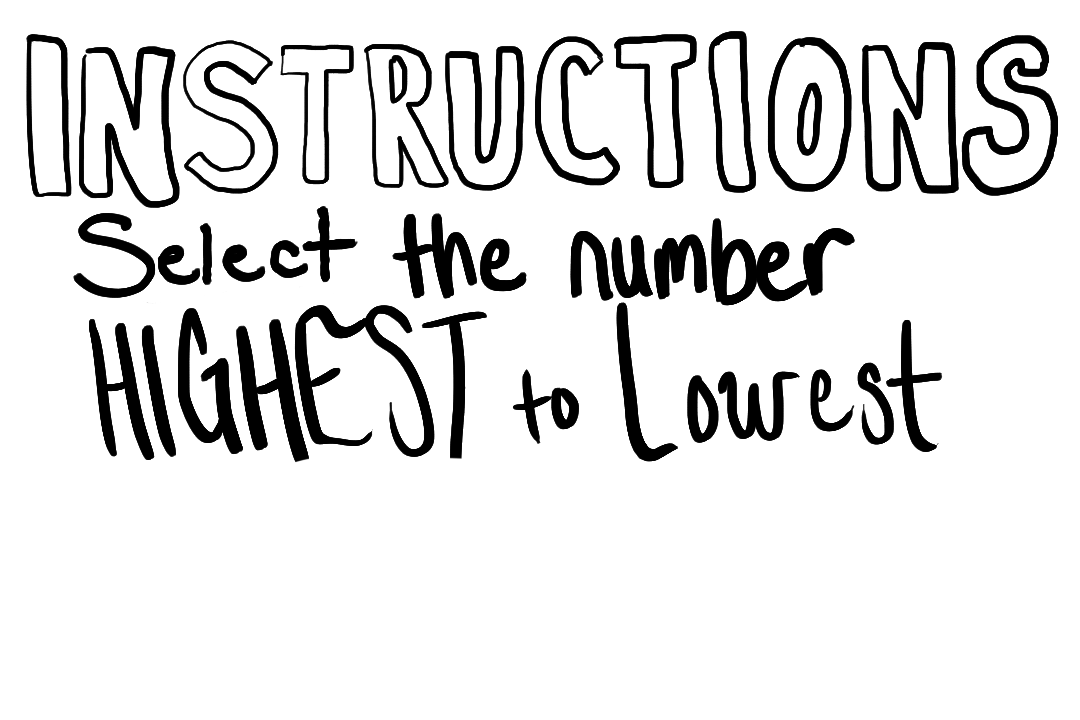 INSTRUCTIONS
Select the number
HIGHEST to Lowest